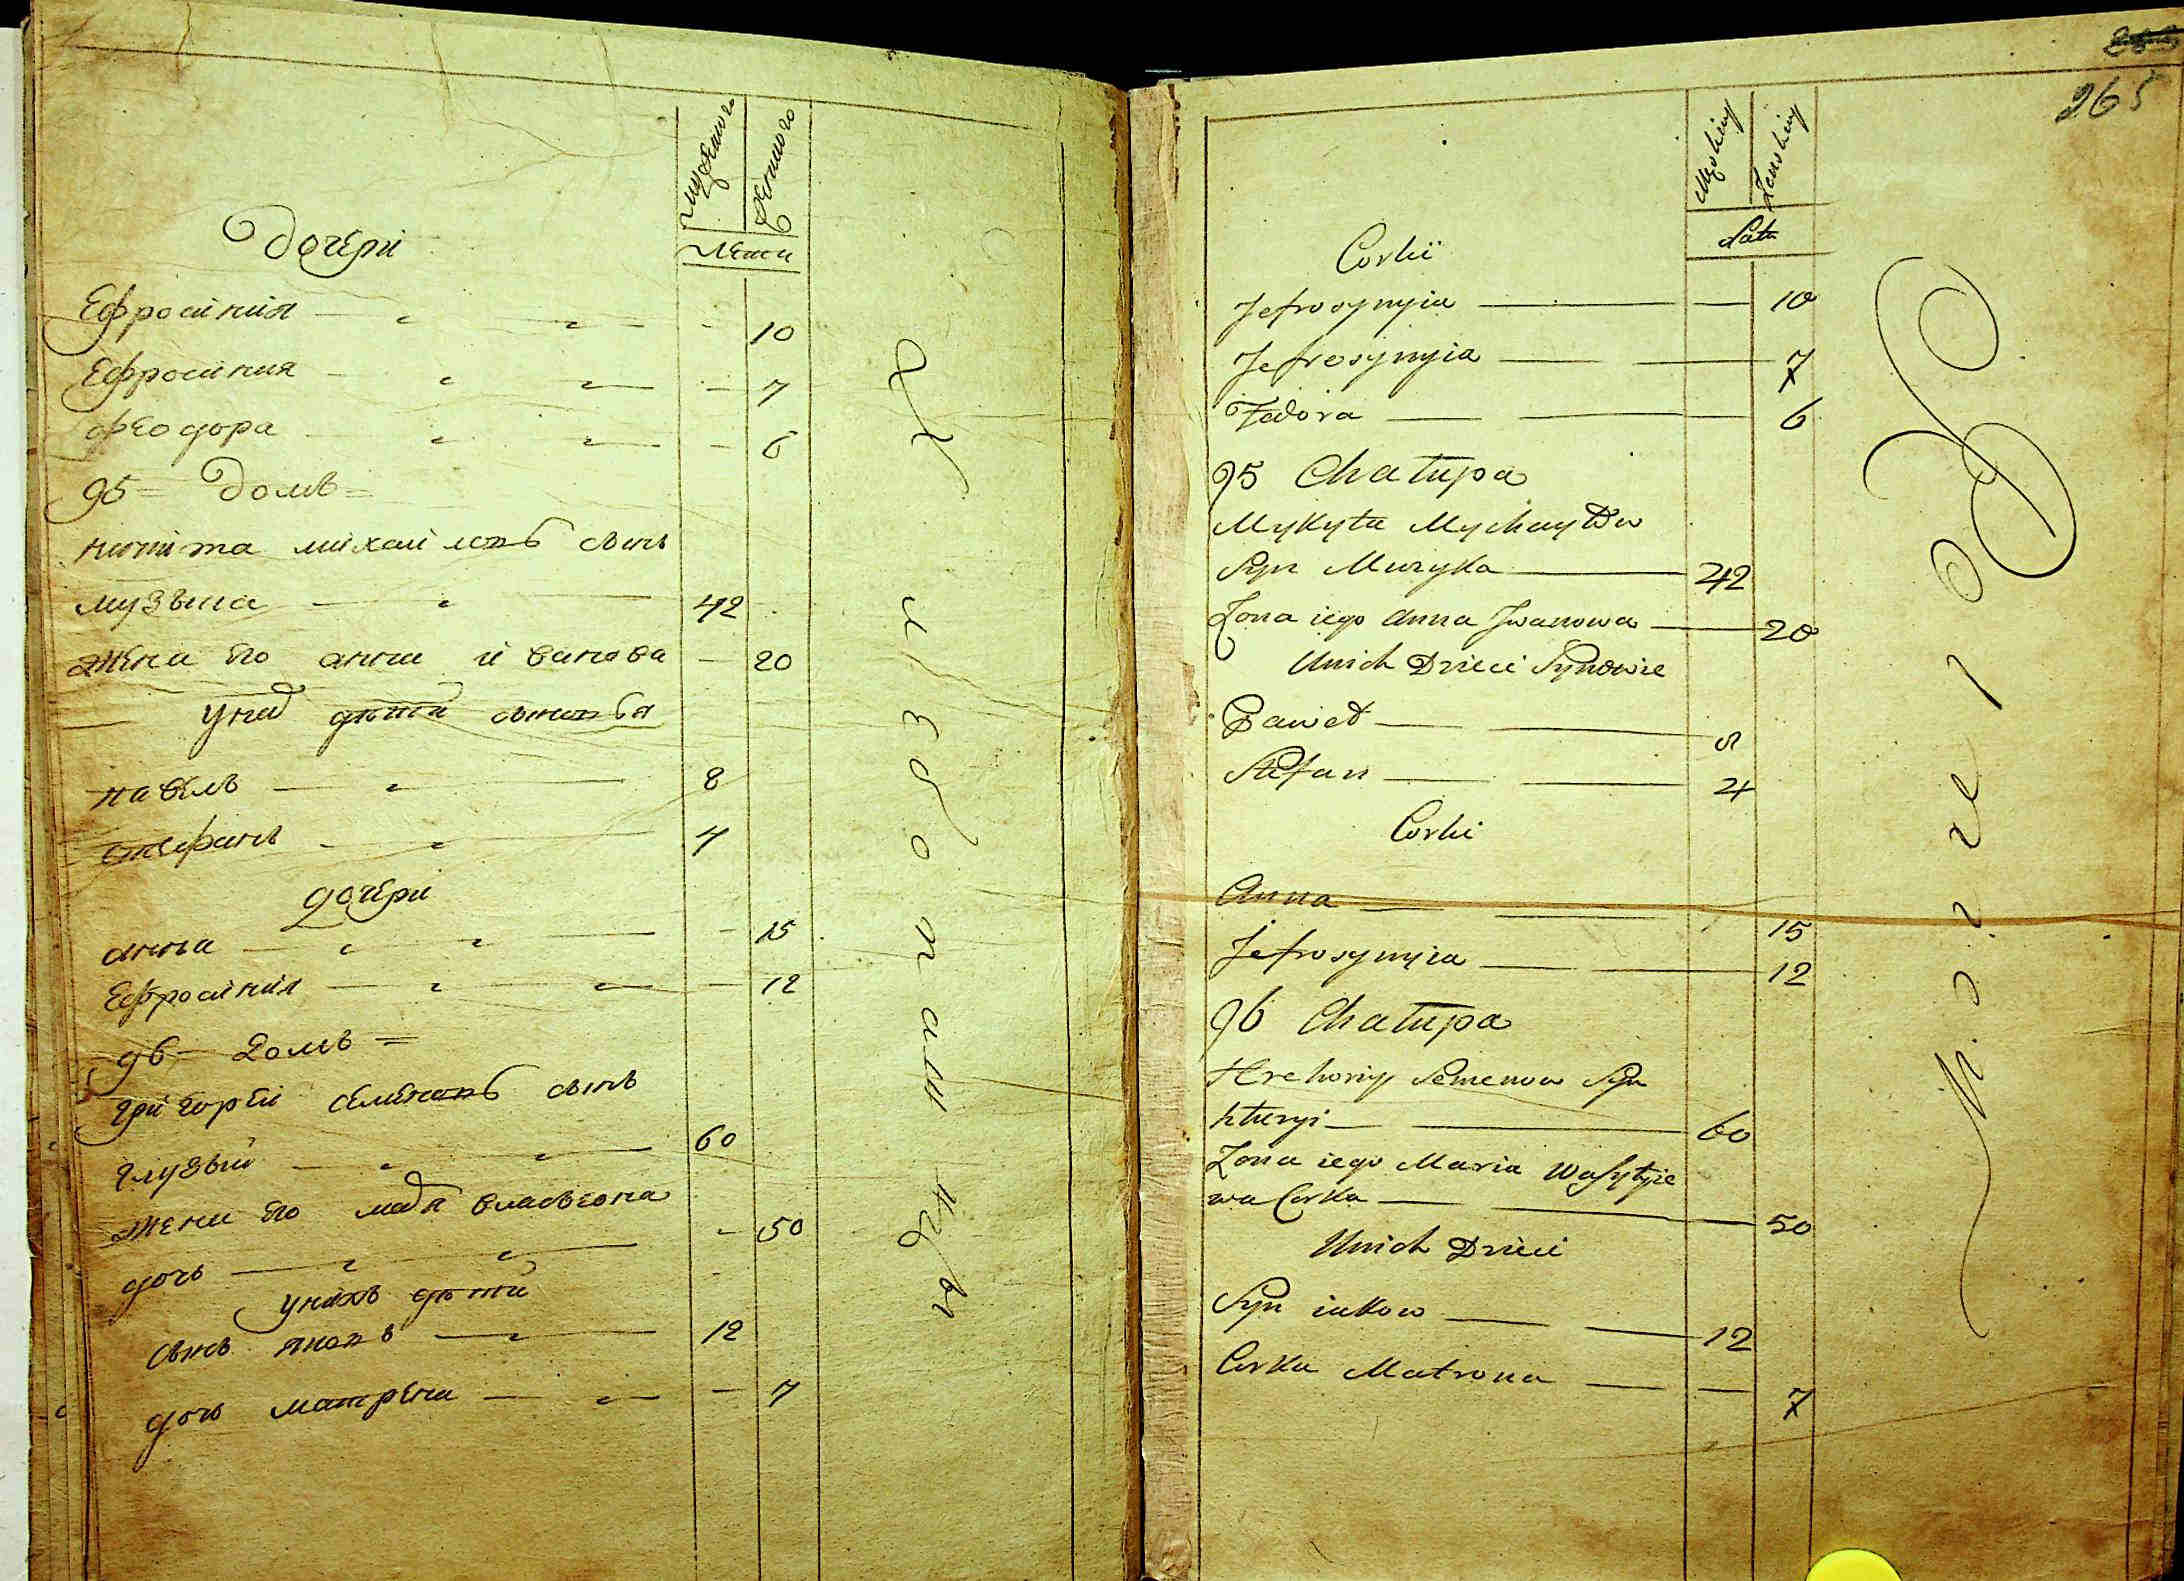 мужеска
женска
Лета
Дочери
Ефросиния 10
Ефросиния 7
Феодора 6
95 Домъ
никита михайловъ сынъ
музыка 42
жена его анна иванова 20
У них дѣти сыновья
павелъ 8
стефанъ 4
дочери
анна 15
Ефросиния 12
96 Домъ
григорей семеновъ сынъ
глузый 60
жена его
дочь 50
У нихъ дѣти
сынъ яковъ 12
дочь матрена 7
265
Męskiey
Żenskiey
Lata
Corki
Jefrosynyia 10
Jefrosynyia 7
Fedora 6
95 Chałupa
Mykyta Mychayłow
Syn Muzyka 42
Żona iego Anna Jwanowa 20
Unich Dzieci Synowie
Paweł 8
Stefan 4
Corki
Anna 15
Jefrosynyia 12
96 Chałupa
Hrehoriy Semenow Syn
60
Żona iego Maria Wasylyie
wa Corka 50
Unich Dzieci
Syn iakow 12
Corka Matrona 7